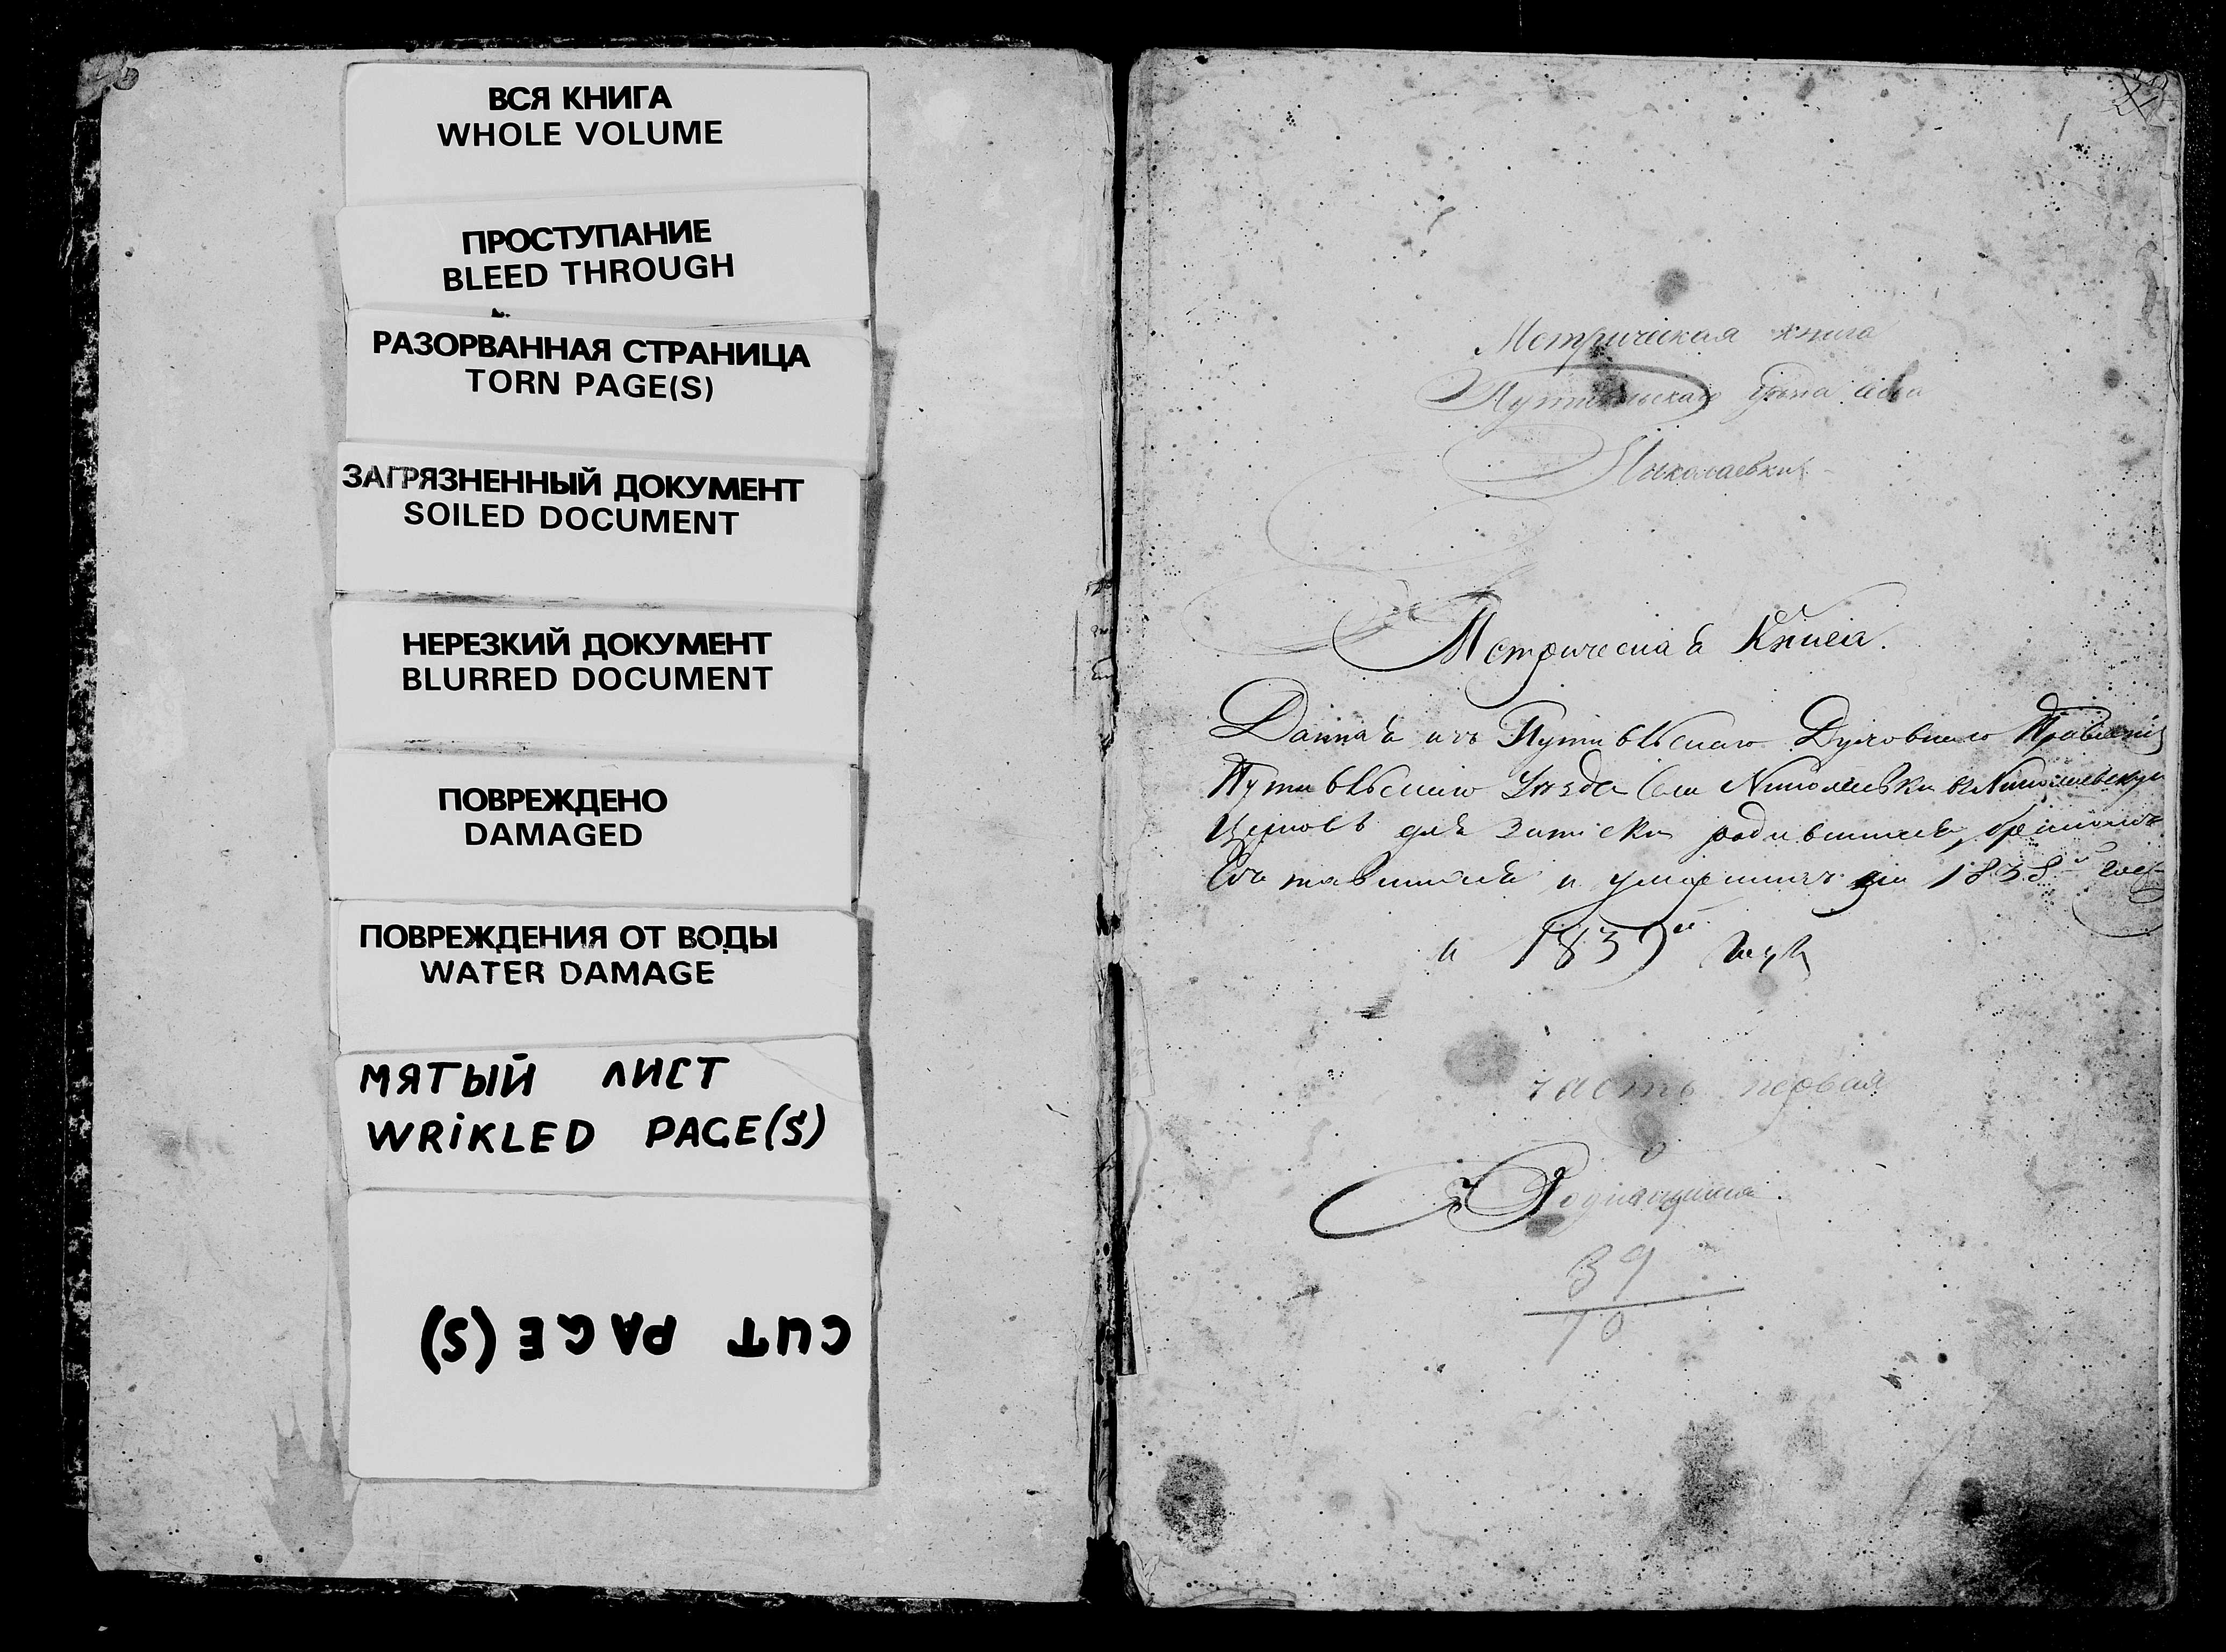 ВСЯ КНИГА
WHOLE VOLUME
ПРОСТУПАНИЕ
BLEED THROUGH
РАЗОРВАННАЯ СТРАНИЦА
TORN PAGE(S)
ЗАГРЯЗНЕННЫЙ ДОКУМЕНТ
SOILED DOCUMENT
НЕРЕЗКИЙ ДОКУМЕНТ
BLURRED DOCUMENT
ПОВРЕЖДЕНО
DAMAGED
ПОВРЕЖДЕНИЯ ОТ ВОДЫ
WATER DAMAGE
МЯТЫЙ ЛИСТ
WRiKLED PAGE(S)
CUT PAGE(S)
1
Метрическая книга
Путивльскаго уезда села
Николаевки
Метрическая Книга.
Данная изъ Путивльскаго Духовнаго Правления
Путивльскаго Уезда села Николаевки в Николаевскую
Церковь для записки родившихся, бракомъ
Сочетавшихся и умершихъ на 1838й годъ
и 1839й годъ
часть первая
о Родившихся
39
70